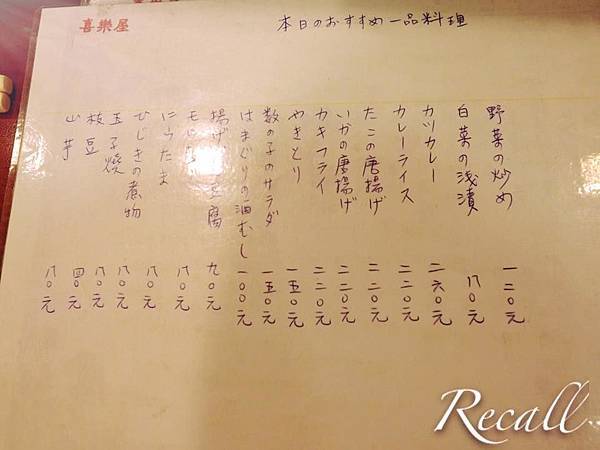 喜樂屋
本日のおすすめ一品料理
野菜の炒め 一二〇元
白菜の浅漬 八〇元
カツカレー 二六〇元
カレーライス 二二〇元
たこの唐揚げ 二二〇元
いかの唐揚げ 二二〇元
カキフライ 二二〇元
やきとり 一五〇元
数の子のサラダ 一五〇元
はまぐりの酒むし 一〇〇元
揚げ 豆腐 九〇元
八〇元
にらたま 八〇元
ひじきの煮物 八〇元
玉子燒 八〇元
枝豆 四〇元
山芋 八〇元
Recall